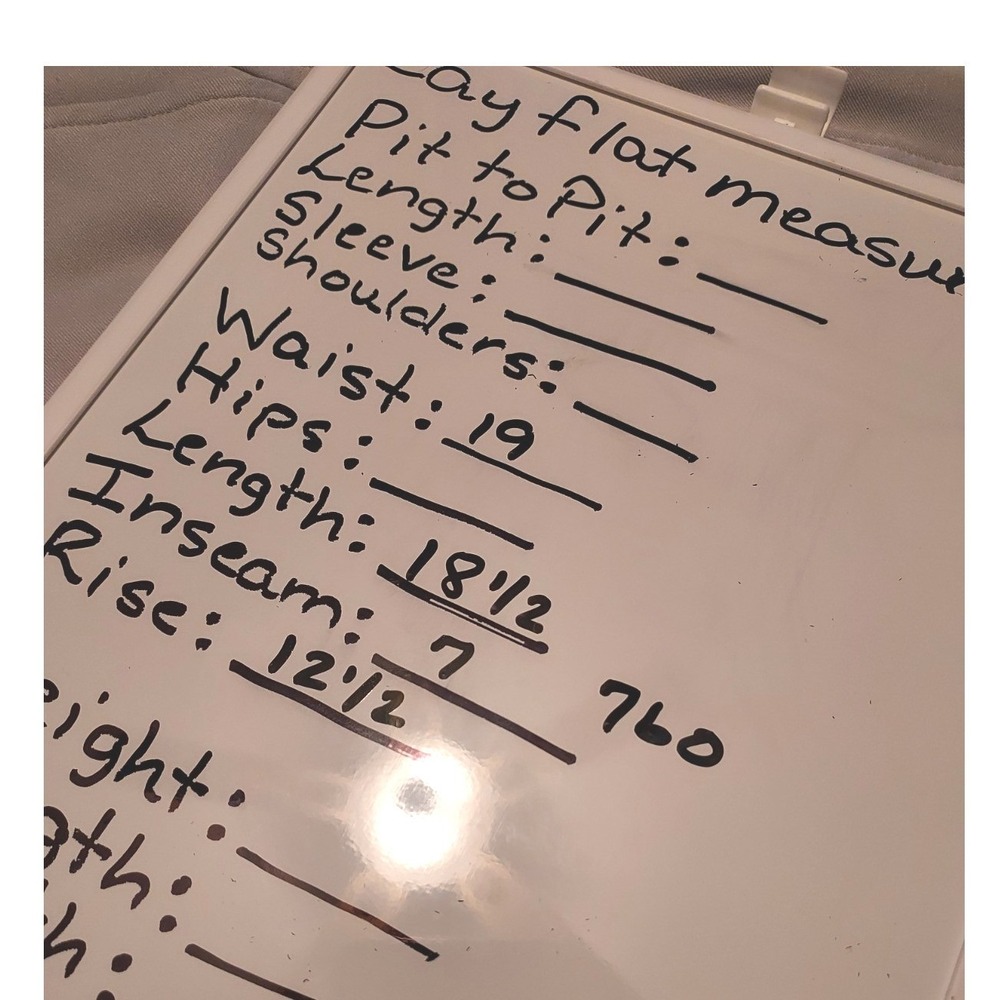 Lay flat measu
Pit to Pit:
Length:
Sleeve:
Shoulders:
Waist: 19
Hips:
Length: 18 1/2
Inseam: 7
Rise: 12 1/2
760
eight:
gth:
h: